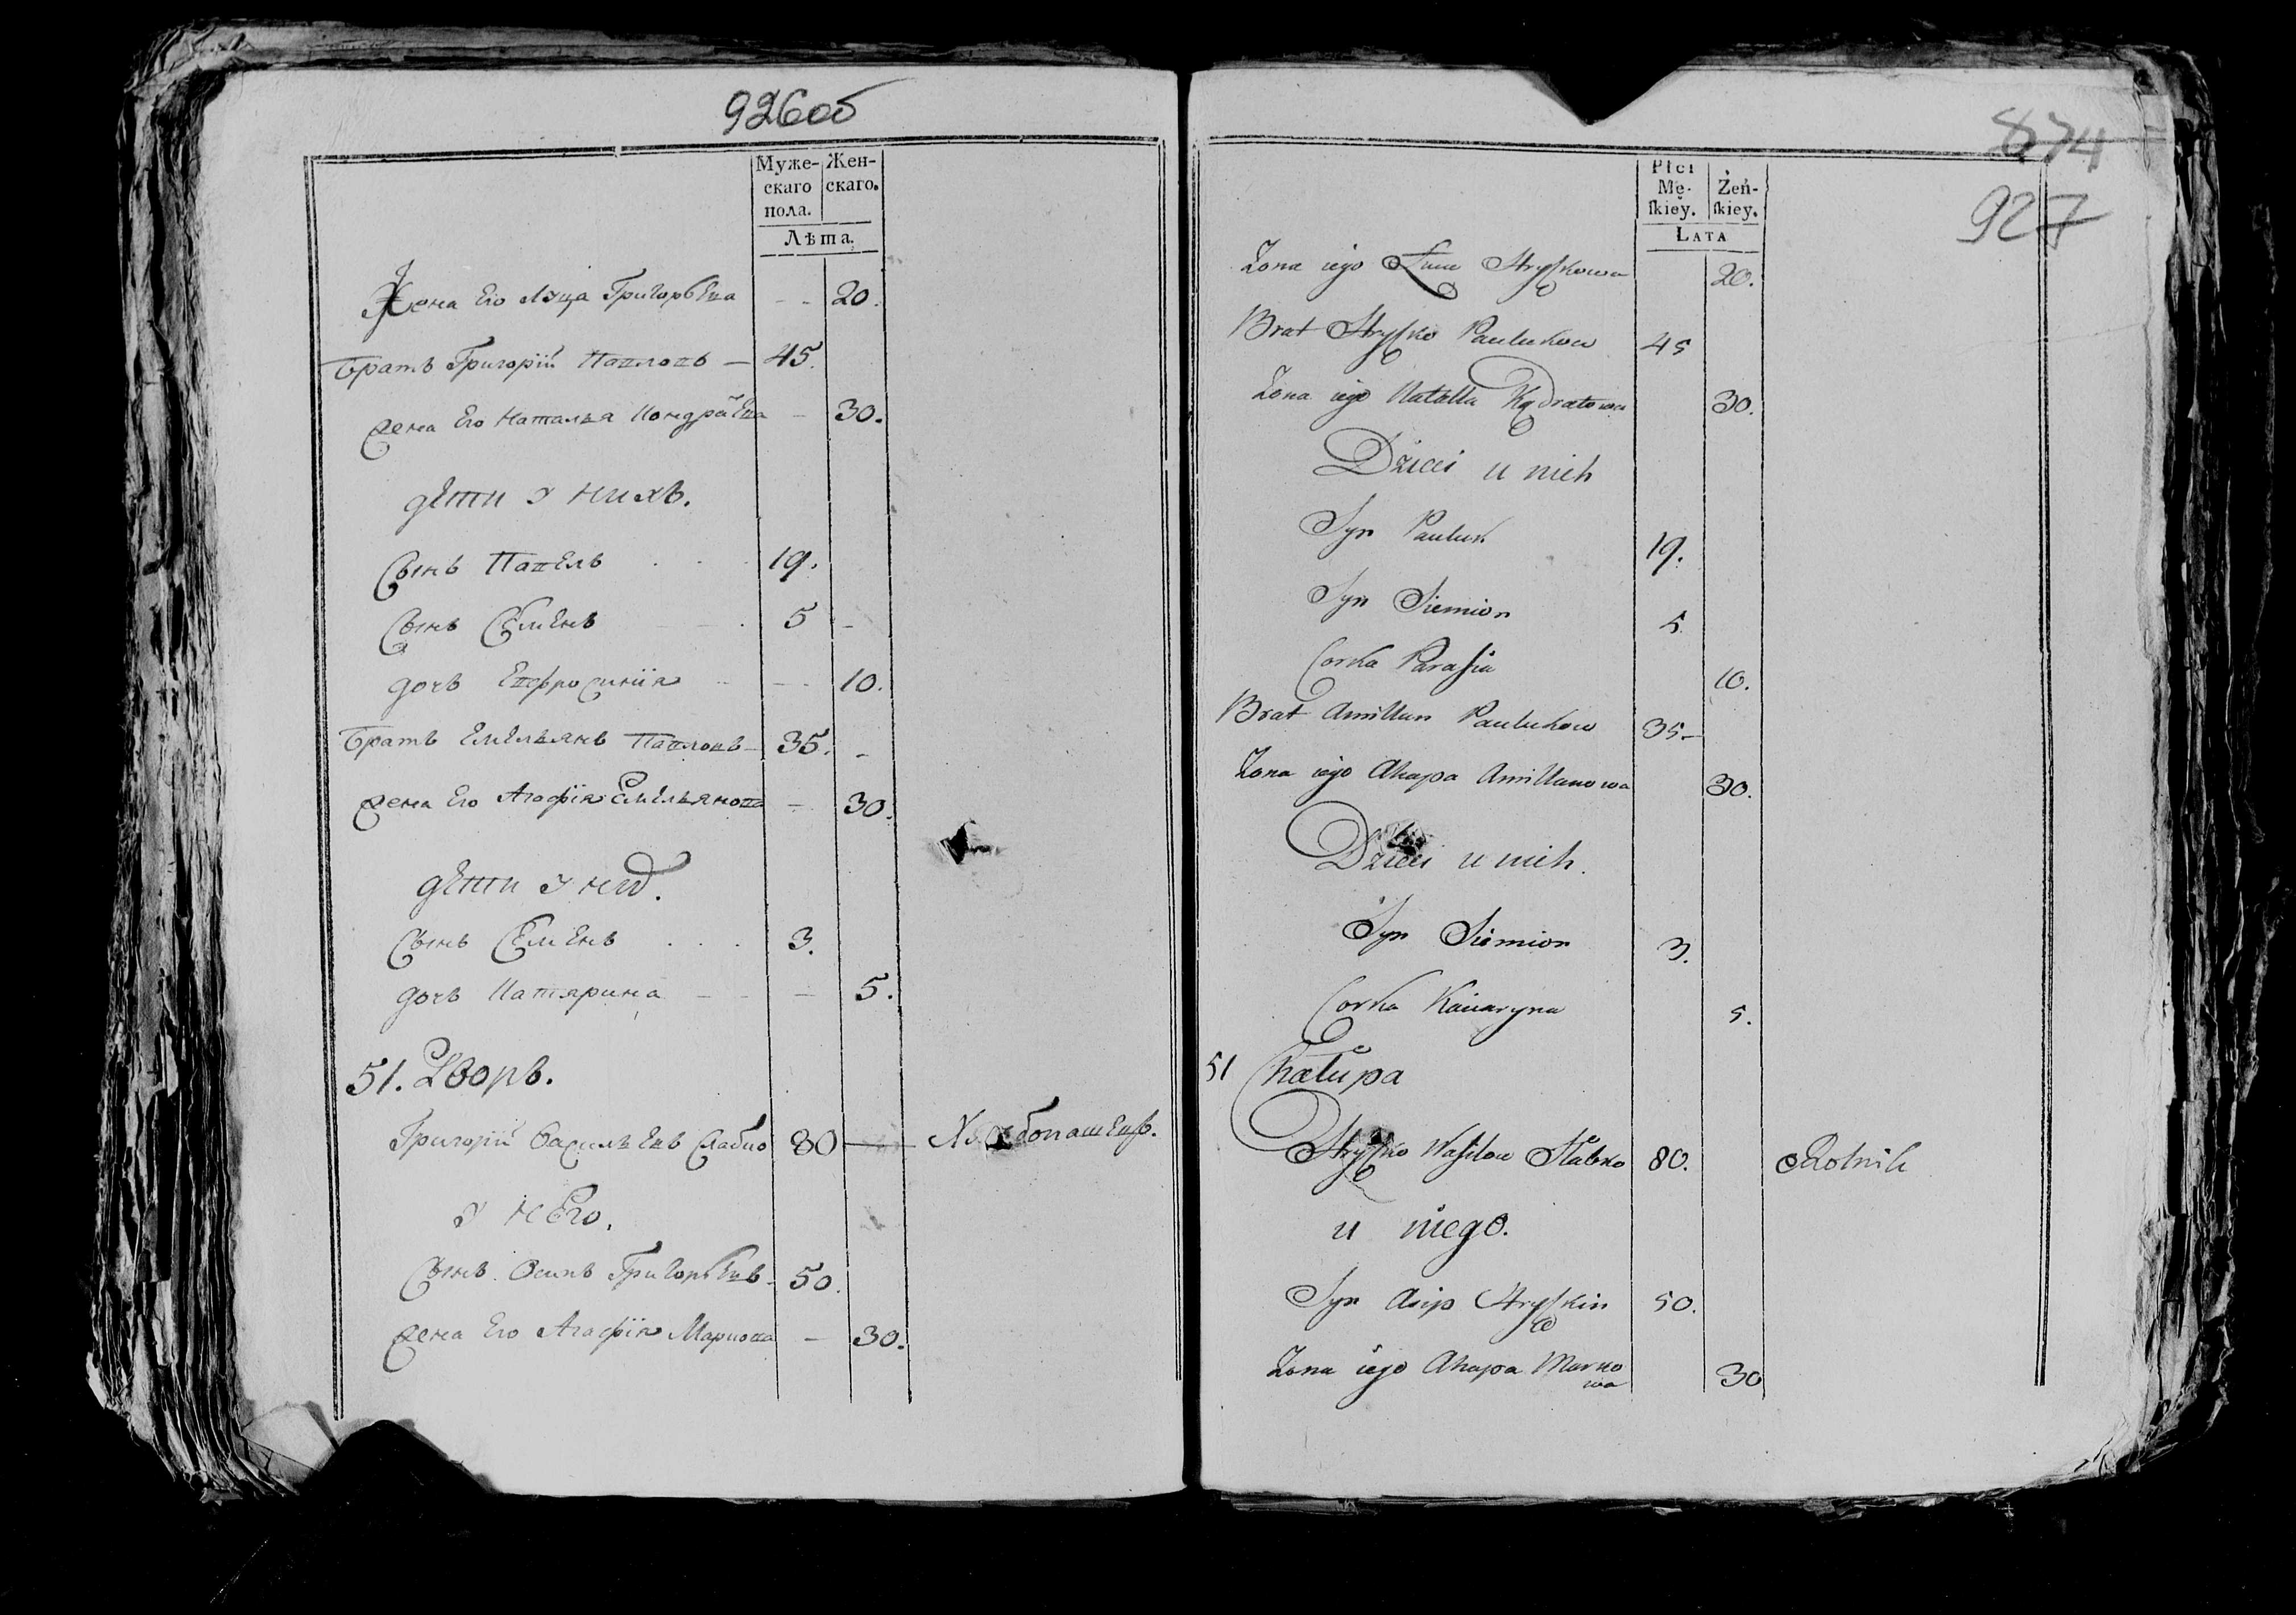 926об
Муже-
скаго
пола.
Жен-
скаго.
Лѣта.
Жена Его Луца Григорьева - - 20.
Братъ Григорій Павловъ — 45.
жена Его Наталья Кондратьева - 30.
дѣти у нихъ.
Сынъ Павелъ . . . 19.
Сынъ Семенъ - - . 5 -
дочь Евфросинія - - - 10.
Братъ Емельянъ Павловъ - 35. -
жена Его Агафія Емельянова - 30.
дѣти у нихъ.
Сынъ Семенъ . . . 3.
дочь Катярина - - - 5.
51. Дворъ.
Григорій Васильевъ Слабко 80 — Хлебопашецъ.
у него.
Сынъ Осипъ Григорьевъ - 50.
жена Его Агафія Маркова - 30.
874
927
Płci
Mę-
ſkiey.
Żeń-
ſkiey.
LATA
Zona iego Hryſkowa 20.
Brat Hryſko Paulukow 45
Zona iego Natalla Kądratowa 30.
Dzieci u nich
Syn Pauluk 19.
Syn Siemion 5.
Corka Paraſia 10.
Brat Amillan Paulukow 35.-
Zona iego Ahapa Amillanowa 30.
Dzieci u nich.
Syn Siemion 3.
Corka Kaciaryna 5.
51 Chałupa
Hryſko Waſilow Słabko 80. Rolnik
u niego.
Syn Asip Hryſkin 50.
Zona iego Ahapa Marko
wa 30